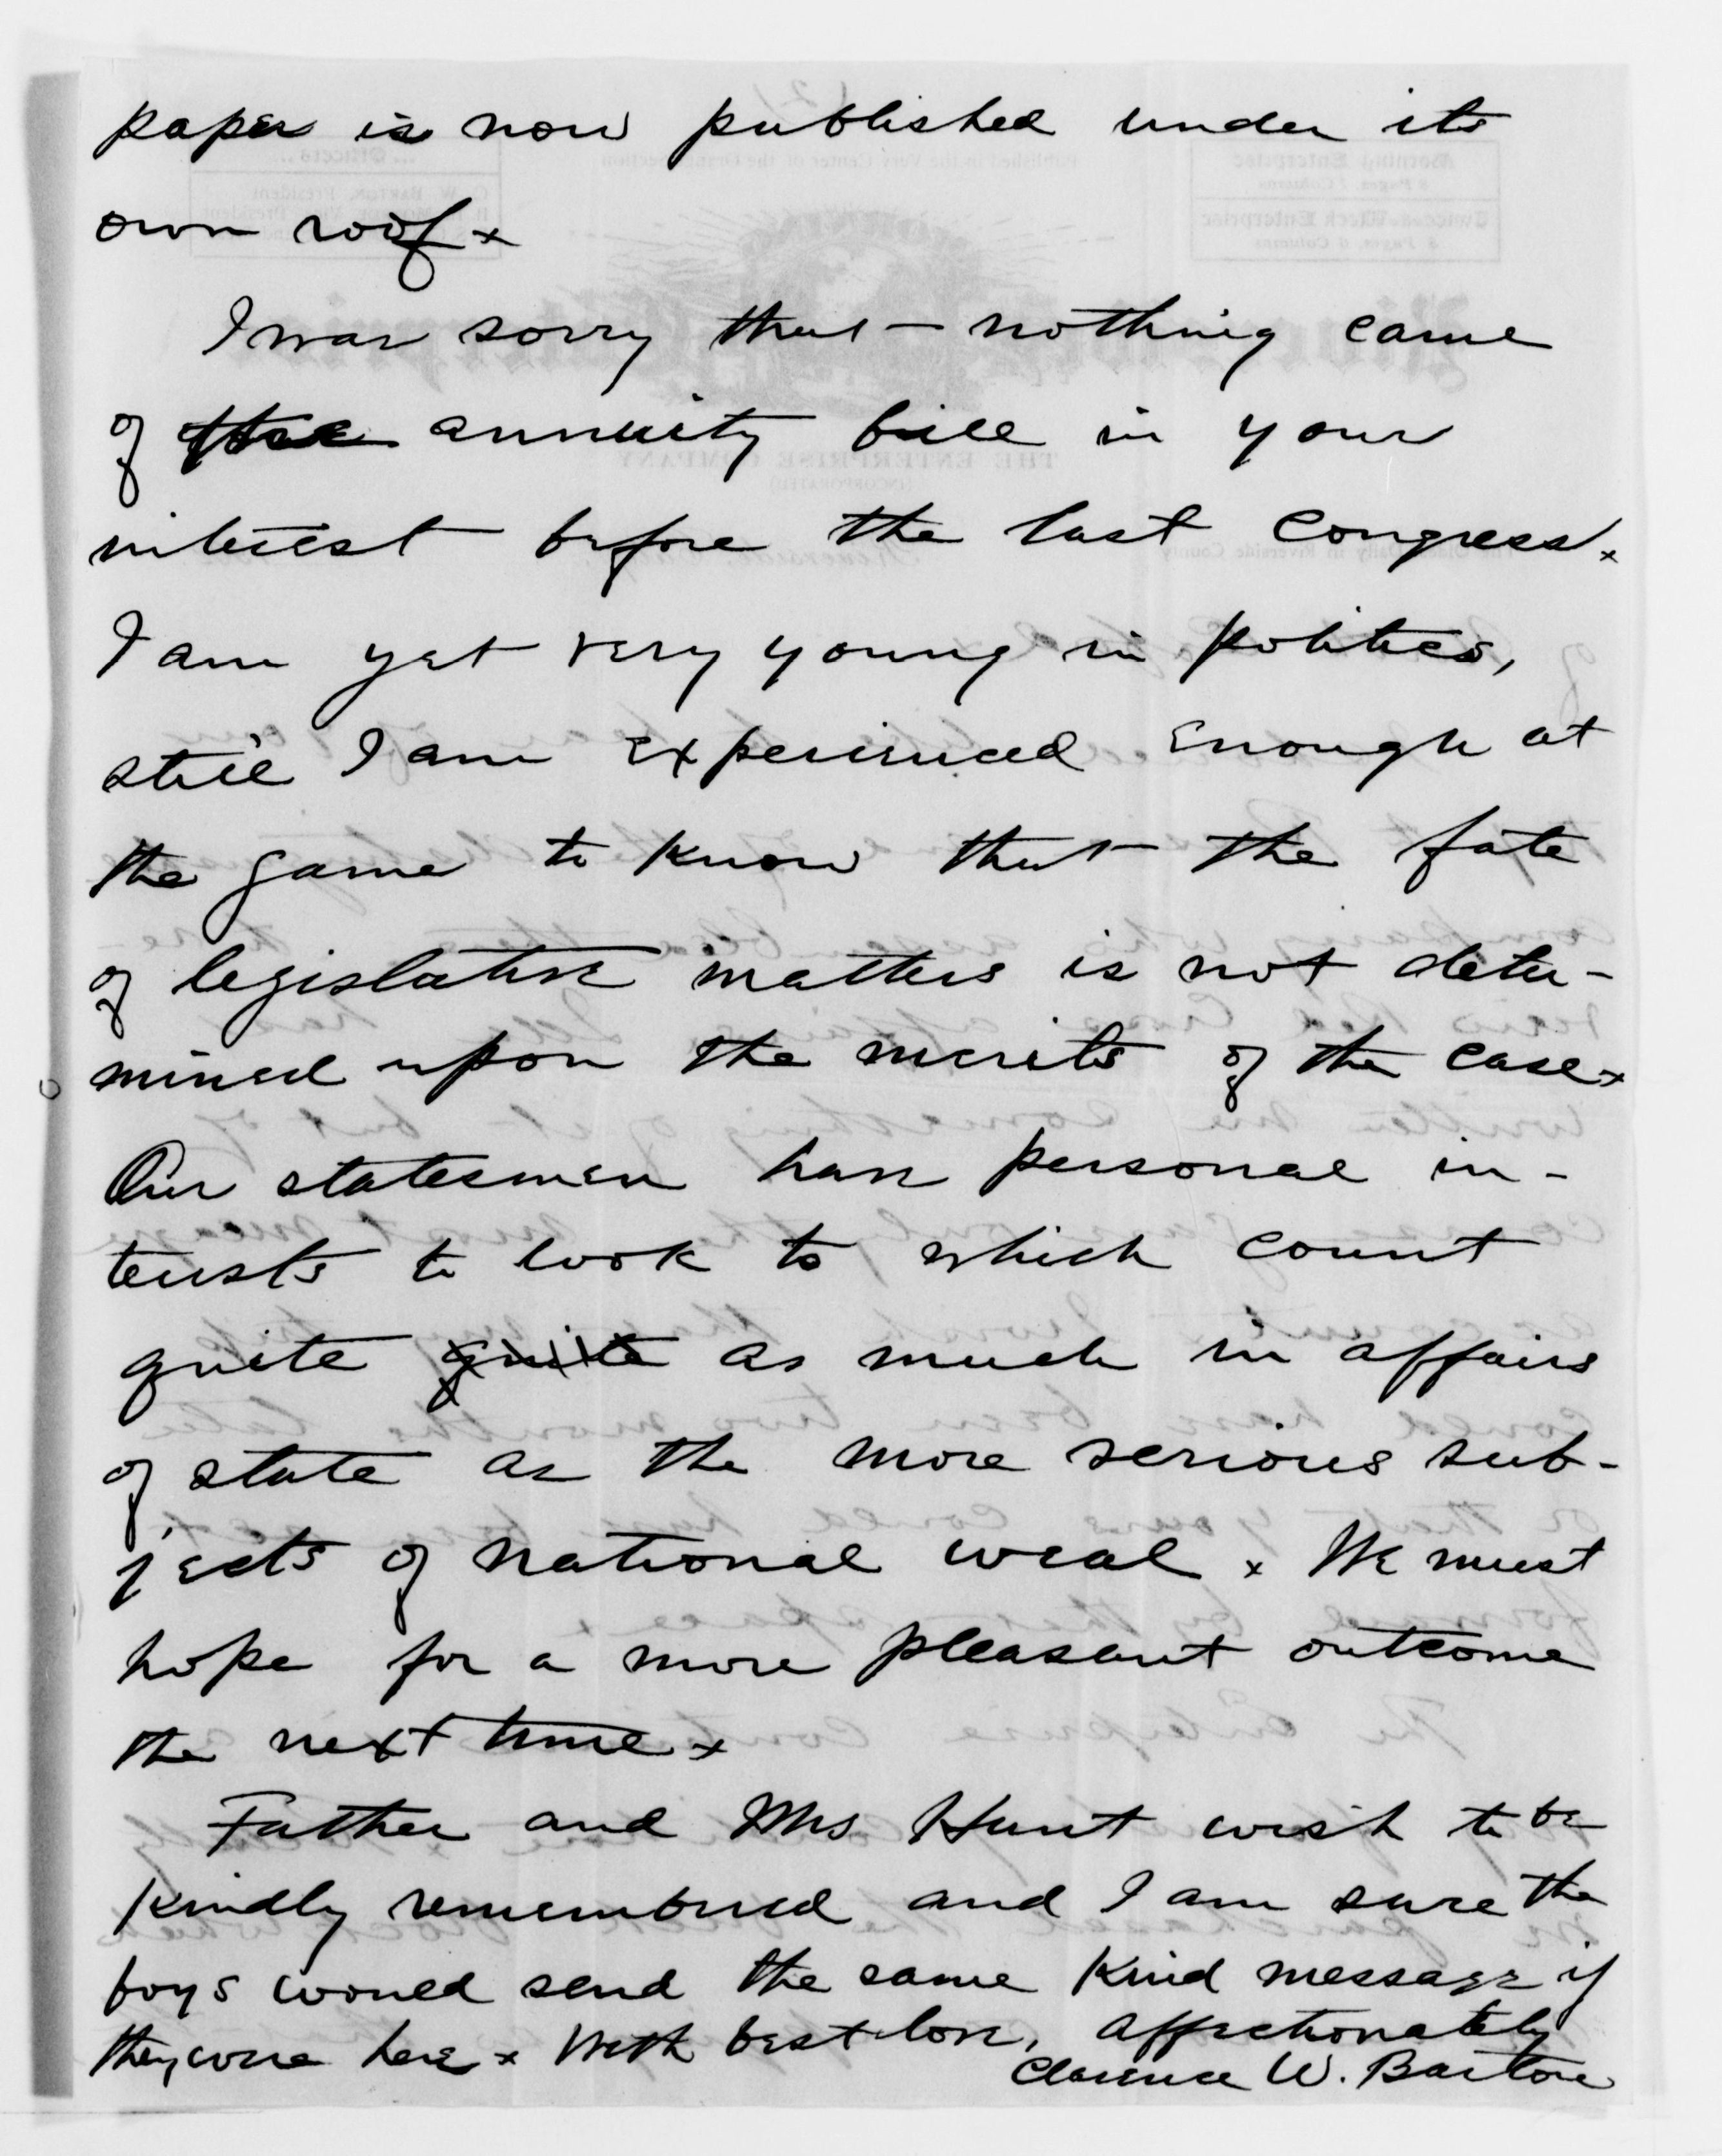 paper is now published under its
own roof x
I was sorry that nothing came
of the annuity bill in your
interest before the last Congress x
I am yet very young in politics,
still I am experienced enough at
the game to know that the fate
of legislative matters is not deter-
mined upon the merits of the case x
Our statesmen have personal in-
terests to look to which count
quite quite as much in affairs
of state as the more serious sub-
jects of national weal x We must
hope for a more pleasant outcome
the next time x
Father and Mrs Hunt wish to be
kindly remembered and I am sure the
boys would send the same kind message if
they were here x With best love, affectionately
Clarence W. Barton